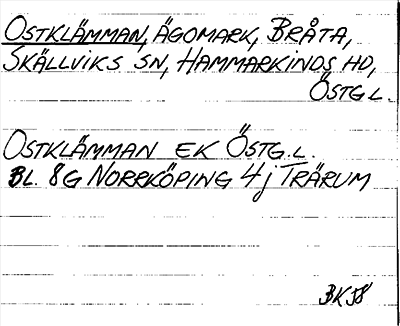 OSTKLÄMMAN, ÄGOMARK, BRÅTA,
SKÄLLVIKS SN, HAMMARKINDS HD,
ÖSTG L.
OSTKLÄMMAN EK ÖSTG.L.
BL. 8G NORRKÖPING 4j TRÄRUM
BK58